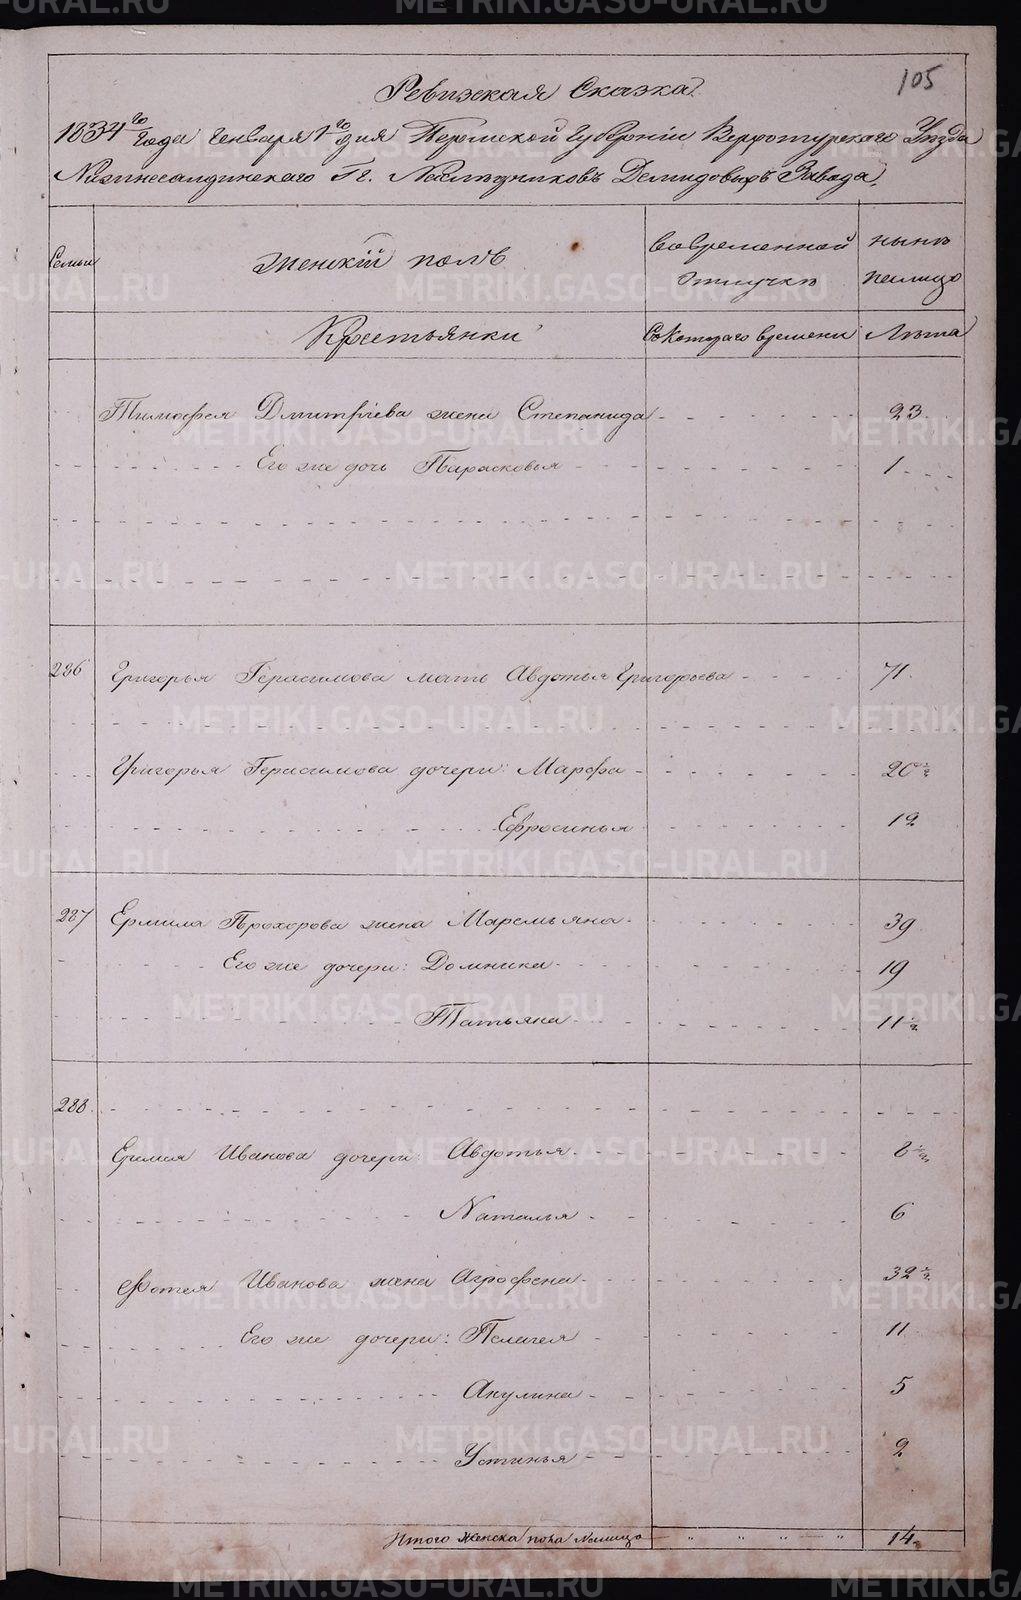 105
Ревизская Сказка
1834го Года Генваря 1го дня Пермской Губернiи Верхотурского Уезда
Нижнесалдинского Гг. Наследниковъ Демидовыхъ Завода.
Семьи
Женскiй полъ
Вовременной отлучке
ныне налицо
Крестьянки
Съ Котораго времени
Лета
Тимофея Дмитрiева жена Степанида 23
Его же дочь Парасковья 1
286 Григорья Герасимова мать Авдотья Григорьева 71
Григорья Герасимова дочери: Марфа 20 1/2
Ефросинья 12
287 Ермила Прохорова жена Маремьяна 39
Его же дочери: Домника 19
Татьяна 11 1/2
288
Ермила Иванова дочери: Авдотья 8
Наталья 6
Фотея Иванова жена Агрофена 32 1/2
Его же дочери: Пелагея 11
Акулина 5
Устинья 2
Итого Женска пола Налицо 14
METRIKI.GASO-URAL.RU